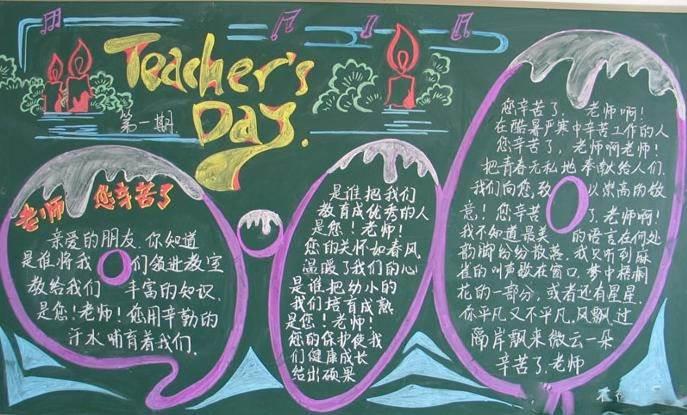 Teacher's
Day.
第一期.
老师 您辛苦了
亲爱的朋友.你知道
是谁将我们领进教室
教给我们丰富的知识.
是您!老师!您用辛勤的
汗水哺育着我们.
是谁把我们
教育成优秀的人
是您!老师!
您的关怀如春风
温暖了我们的心
是谁把幼小的
我们培育成熟
是您!老师!
您的保护使我
们健康成长
结出硕果
您辛苦了,老师啊!
在酷暑严寒中辛苦工作的人
您辛苦了,老师啊老师!
把青春无私地奉献给人们.
我们向您致以崇高的敬
意!您辛苦了.老师啊!
我不知道最美的语言在何处
韵脚纷纷散落.我又听到麻
雀的叫声歇在窗口.梦中梧桐
花的一部分,或者还有星星.
你平凡又不平凡.风飘过
隔岸飘来微云一朵
辛苦了.老师